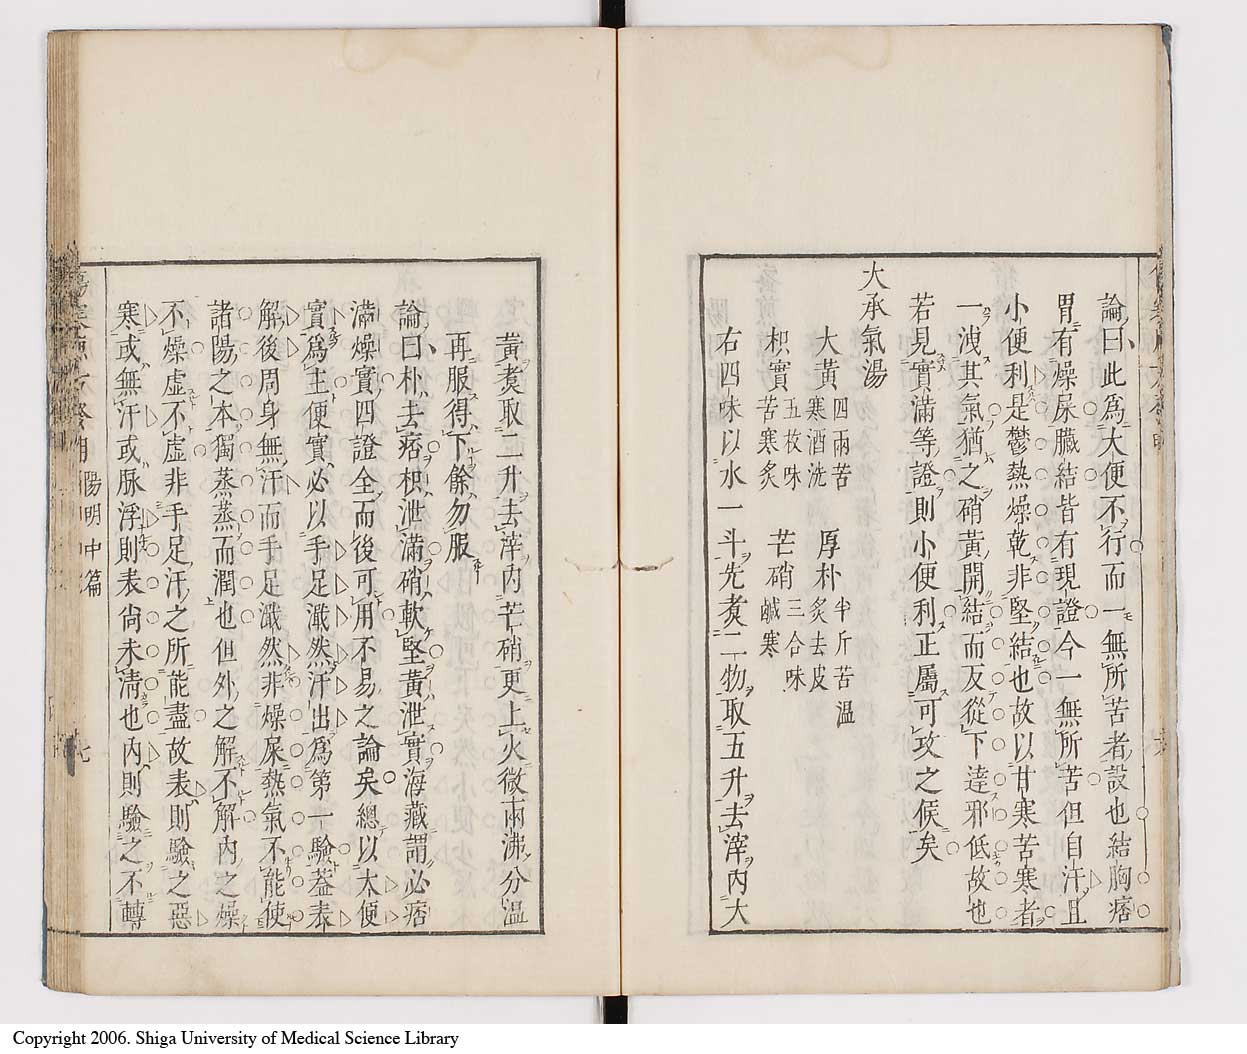 論曰此爲大便不行而一無所苦者設也結胸痞
胃有燥屎臟結皆有現證今一無所苦但自汗且
小便利是鬱熱燥乾非堅結也故以甘寒苦寒者
一洩其氣猶之硝黃開結而反從下達邪低故也
若見實滿等證則小便利正屬可攻之候矣
大承氣湯
大黃四兩苦寒酒洗 厚朴半斤苦溫炙去皮
枳實五枚味苦寒炙 芒硝三合味鹹寒
右四味以水一斗先煑二物取五升去滓內大
黃煑取二升去滓內芒硝更上火微兩沸分溫
再服得下餘勿服
論曰朴去痞枳泄滿硝軟堅黃泄實海藏謂必痞
滿燥實四證全而後可用不易之論矣總以大便
實爲主便實必以手足濈然汗出爲第一驗蓋表
解後周身無汗而手足濈然非燥屎熱氣不能使
諸陽之本獨蒸蒸而潤也但外之解不解內之燥
不燥虛不虛非手足汗之所能盡故表則驗之惡
寒或無汗或脉浮則表尙未淸也內則驗之不轉
陽明中篇
七
Copyright 2006. Shiga University of Medical Science Library